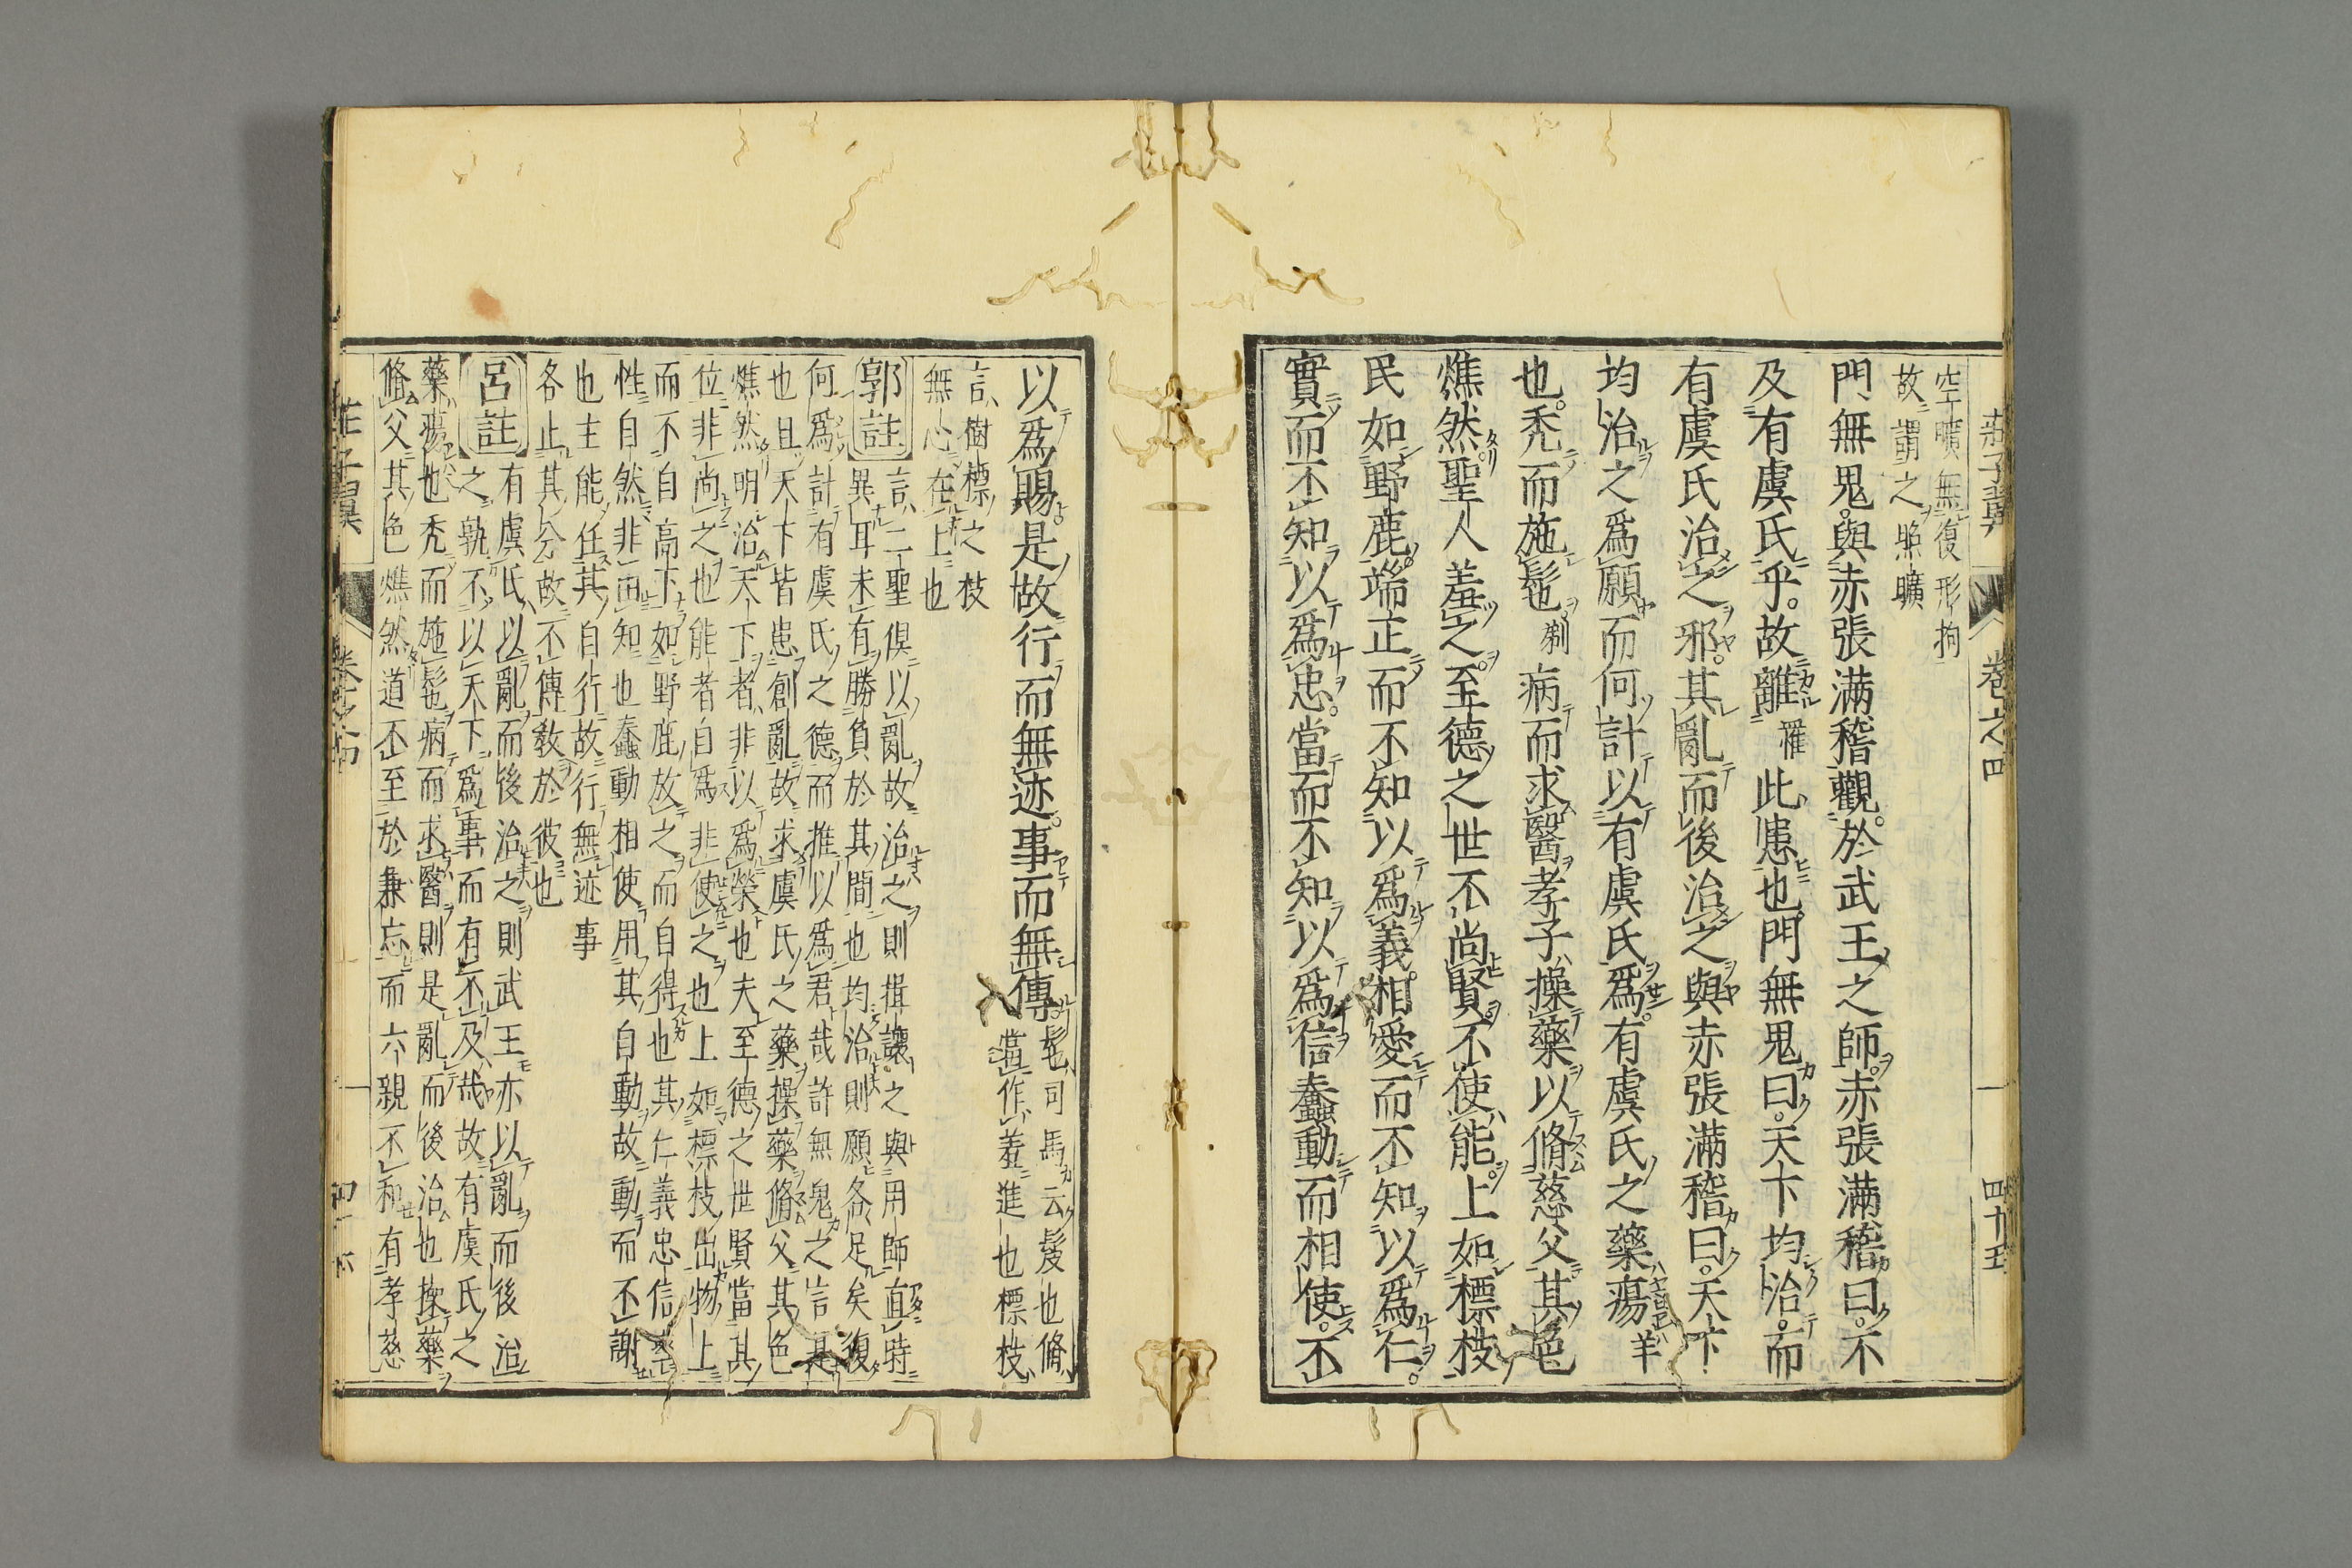 莊子翼 卷之四 四十五
空曠無復形拘
故謂之照曠
門無鬼與赤張滿稽觀於武王之師赤張滿稽曰不
及有虞氏乎故離罹此患也門無鬼曰天下均治而
有虞氏治之邪其亂而後治之與赤張滿稽曰天下
均治之爲願而何計以有虞氏爲有虞氏之藥瘍羊
也禿而施髢剃病而求醫孝子操藥以脩慈父其色
燋然聖人羞之至德之世不尚賢不使能上如標枝
民如野鹿端正而不知以爲義相愛而不知以爲仁
實而不知以爲忠當而不知以爲信蠢動而相使不
以爲賜是故行而無迹事而無傳
髢司馬云髮也脩
當作羞進也標枝
言樹標之枝
無心在上也
郭註
言二聖俱以亂故治之則揖讓之與用師直時
異耳未有勝負於其間也均治則願各足矣復
何爲計有虞氏之德而推以爲君哉許無鬼之言是
也且天下皆患創亂故求虞氏之藥操藥脩父其色
燋然明治天下者非以爲榮也夫至德之世賢當其
位非尚之也能者自爲非使之也上如標枝出物上
而不自高下如野鹿放之而自得也其仁義忠信率
性自然非由知也蠢動相使用其自動故動而不謝
也主能任其自行故行無迹事
各止其分故不傳教於彼也
呂註
有虞氏以亂而後治之則武王亦以亂而後治
之孰不以天下爲事而有不及哉故有虞氏之
藥瘍也禿而施髢病而求醫則是亂而後治也操藥
脩父其色燋然道不至於兼忘而六親不和有孝慈